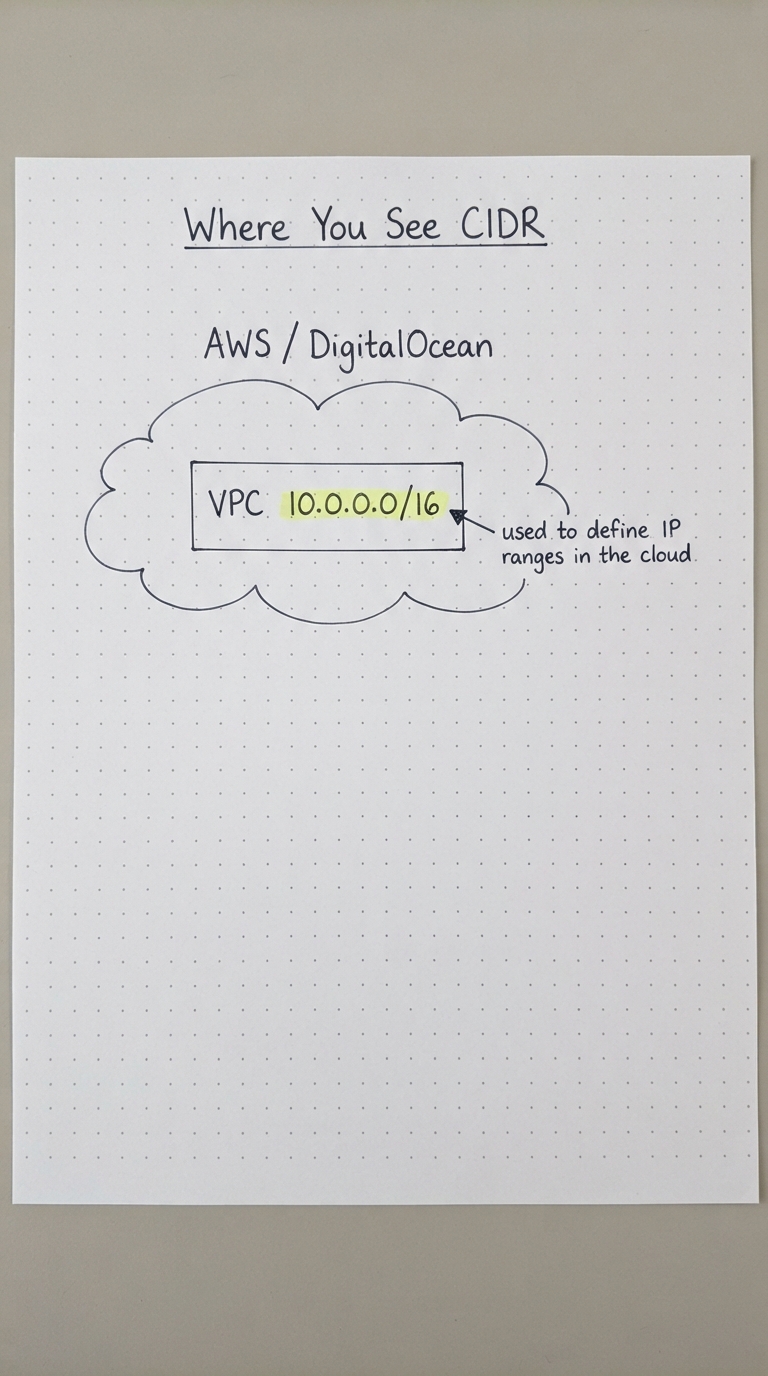 Where You See CIDR
AWS / DigitalOcean
VPC 10.0.0.0/16
used to define IP
ranges in the cloud